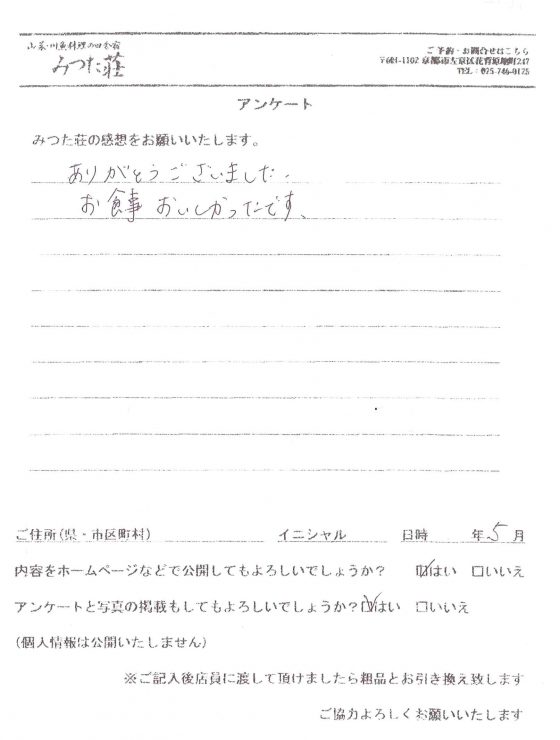 山菜・川魚料理の田舎宿
みつた荘
ご予約・お問合せはこちら
〒601-1102 京都市左京区花背原地町247
TEL: 075-746-0175
アンケート
みつた荘の感想をお願いいたします。
ありがとうございました.
お食事 おいしかったです、
ご住所(県・市区町村) イニシャル 日時 年 5 月
内容をホームページなどで公開してもよろしいでしょうか? ☑はい □いいえ
アンケートと写真の掲載もしてもよろしいでしょうか? ☑はい □いいえ
(個人情報は公開いたしません)
※ご記入後店員に渡して頂けましたら粗品とお引き換え致します
ご協力よろしくお願いいたします